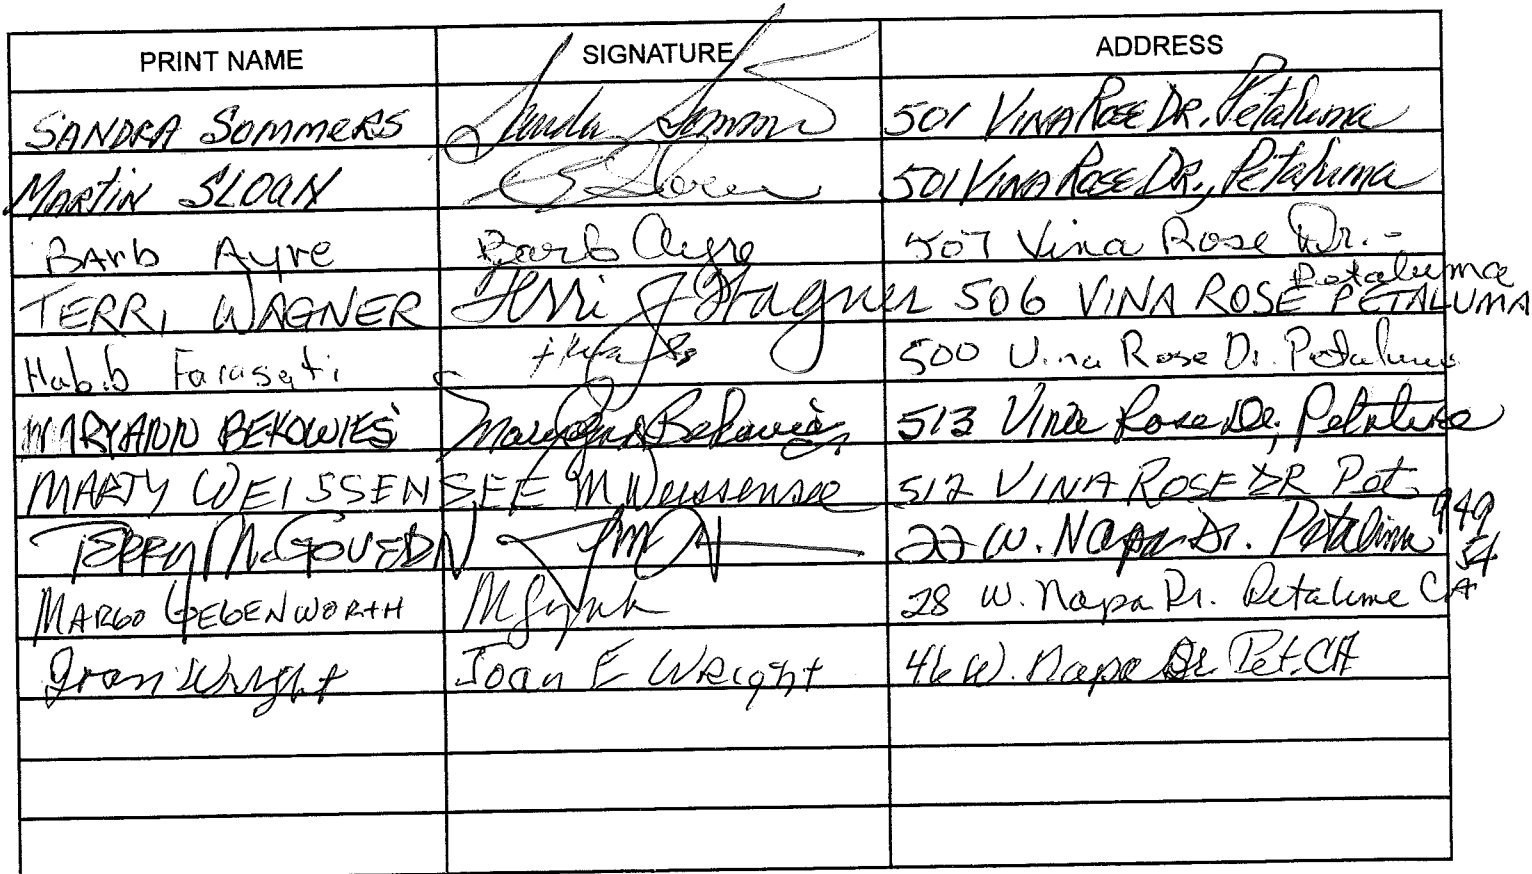 PRINT NAME SIGNATURE ADDRESS
SANDRA SOMMERS Sandra Sommers 501 VINA ROSE DR. Petaluma
MARTIN SLOAN Sloan 501 VINA ROSE DR., Petaluma
BArb Ayre Barb Ayre 507 Vina Rose Dr. -
Petaluma
TERRI WAGNER Terri J Wagner 506 VINA ROSE PETALUMA
Habib Farasati 500 Vina Rose Dr. Petaluma
MARYANN BEKOWIES Maryann Bekowies 513 Vina Rose Dr, Petaluma
MARTY WEISSENSEE M Weissensee 512 VINA ROSE DR Pet
TERRY McGOVERN 22 W. Napa Dr. Petaluma 949
54
MARGO GEGENWORTH 28 W. Napa Dr. Petaluma CA
Joan Wright Joan E Wright 46 W. Napa Dr. Pet. CA